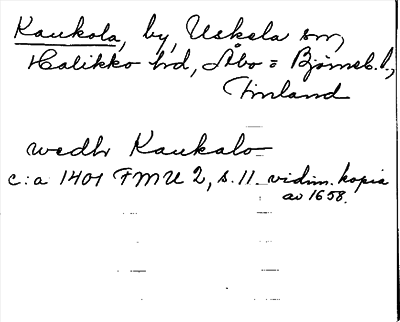 Kaukola, by, Uskela sn,
Halikko hd, Åbo = Björneb. l.,
Finland
wedh Kaukalo
c:a 1401 FMU 2, s. 11 vidim. kopia
av 1658.